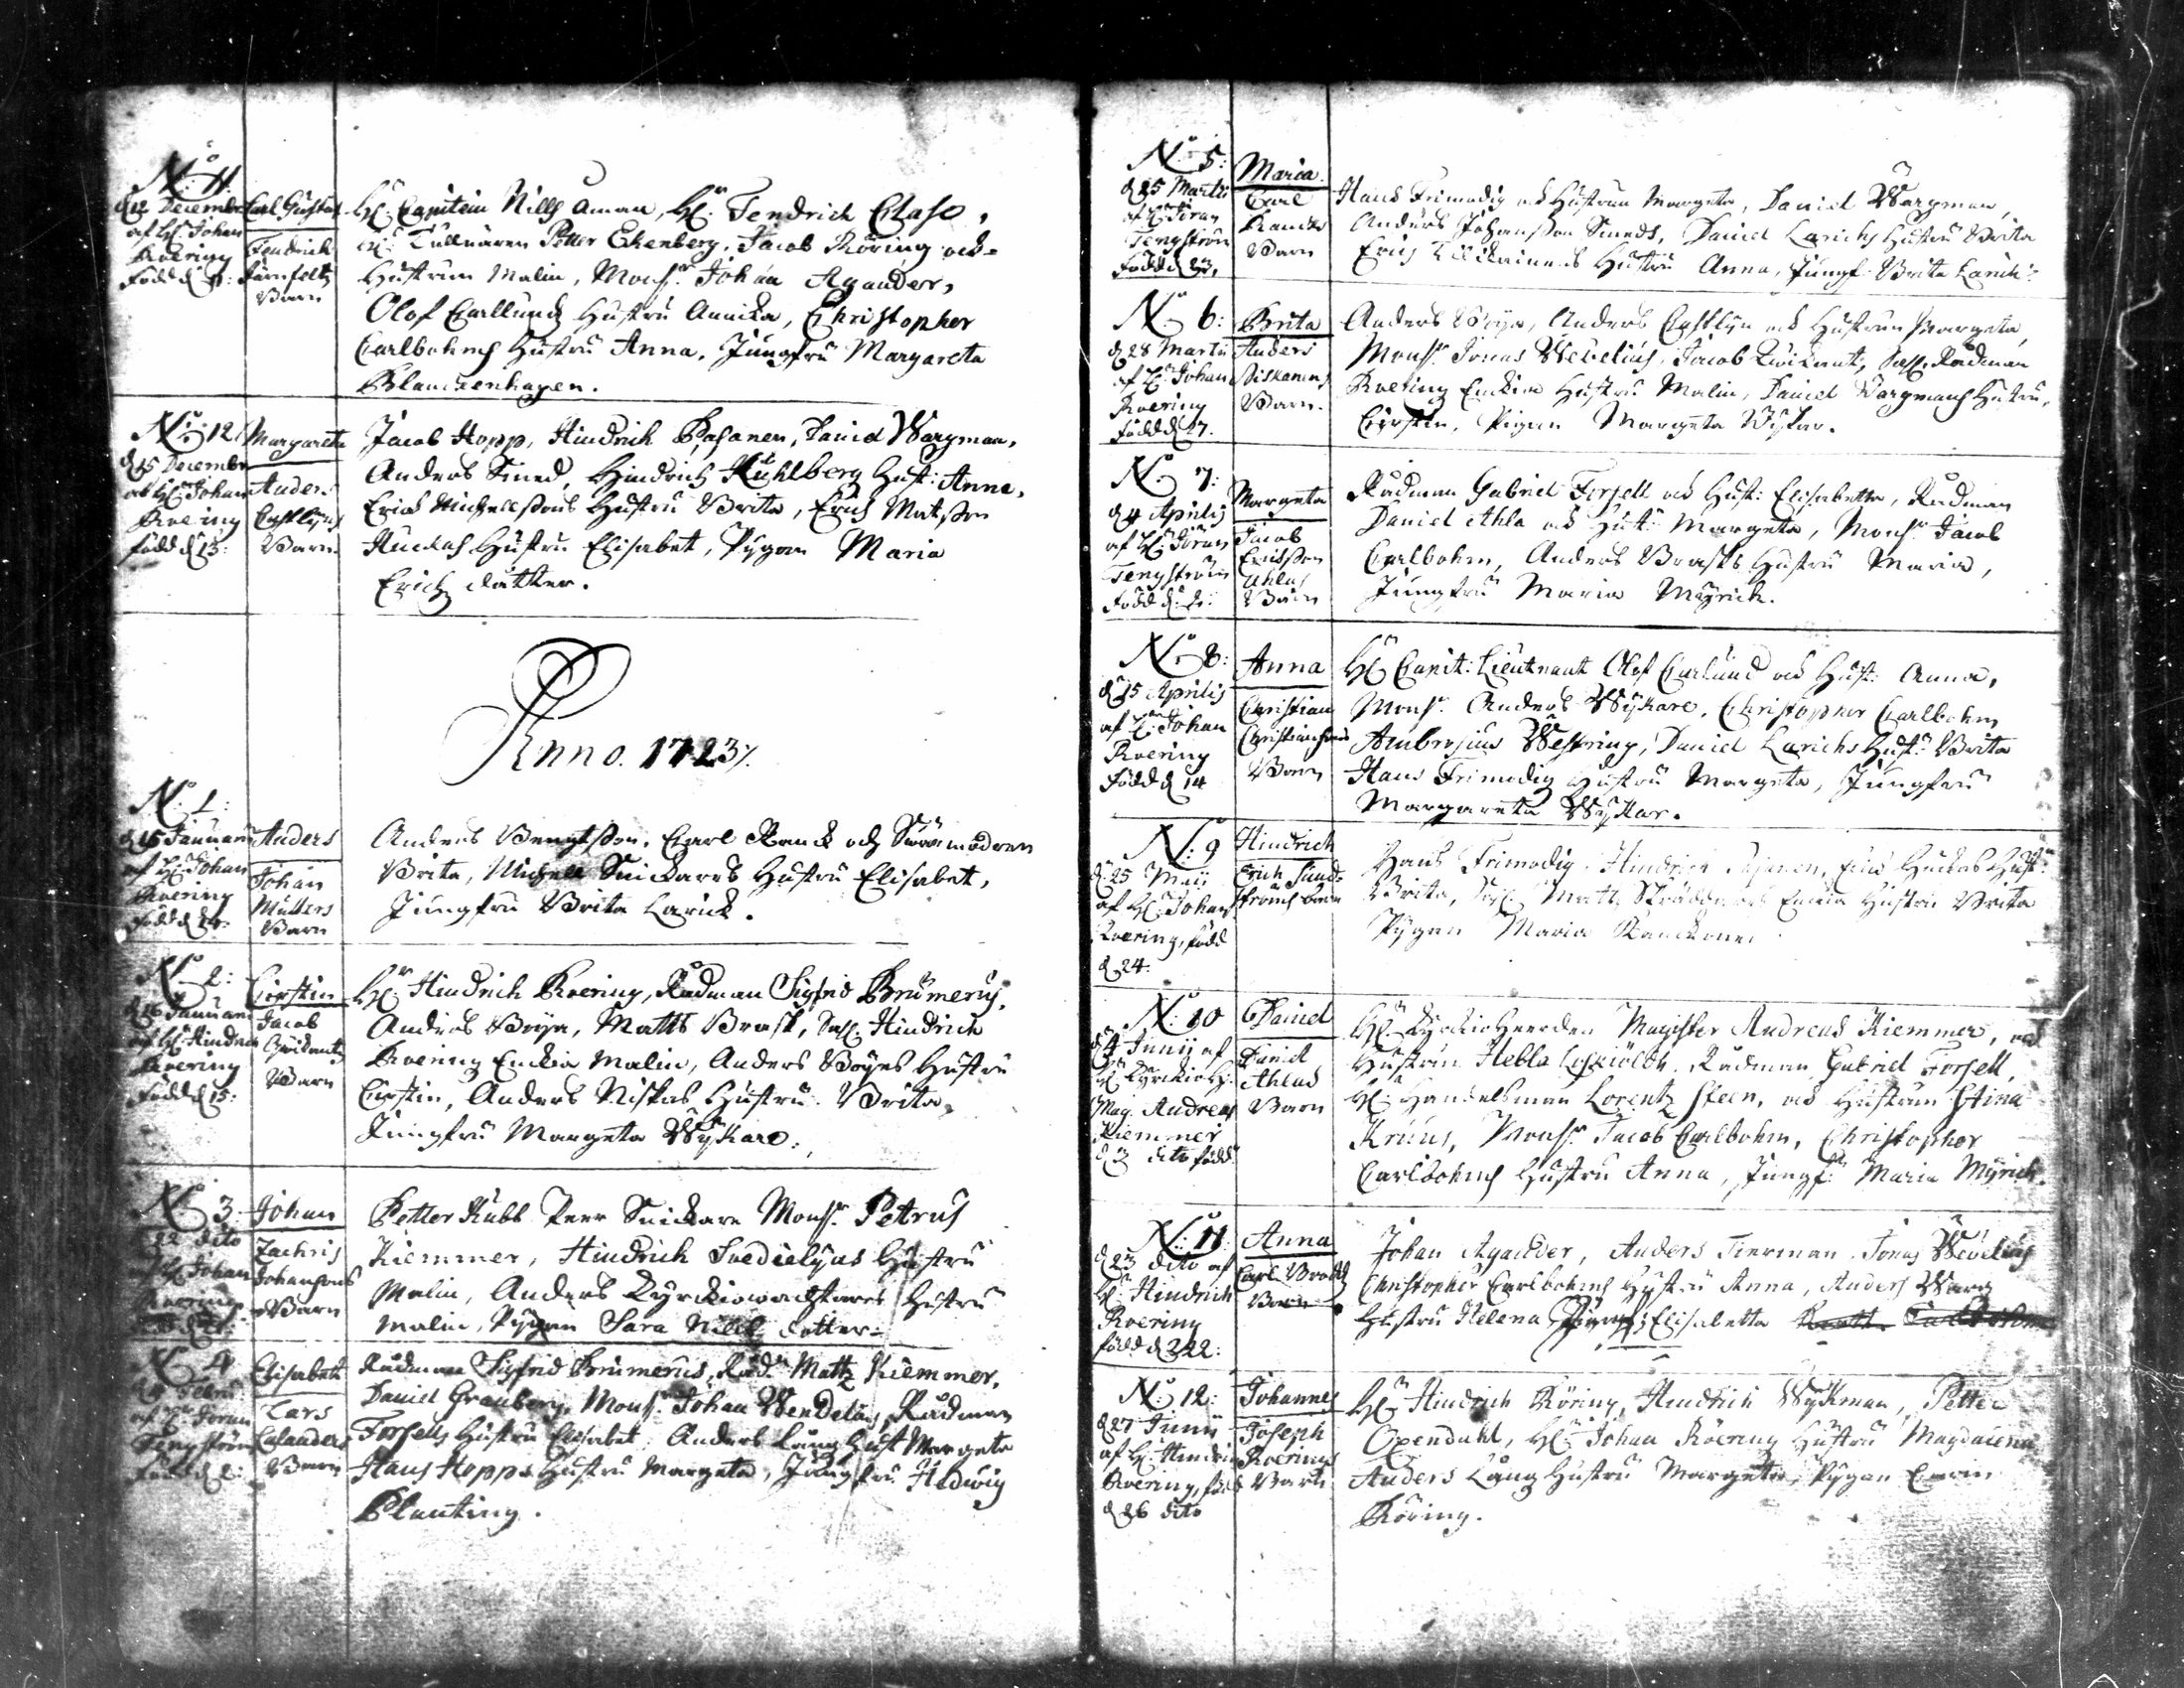 No 11:
d. 12 Decembr
af H: Johan
Roering
född d. 11:
Carl Gustaf
Fendrich
Barn
H: Capitein Nills Aman, H: Fendrich Claso,
Tullnären Petter Ekenberg, Jacob Röring och
Hustrun Malin, Mons: Johan Agander,
Olof Carllunds Hustru Annika, Christopher
Carlbohms Hustru Anna, Jungfru Margareta
Blanckenhagen.
No 12
d. 15 Decembr
af H: Johan
Roering
född d. 13:
Margareta
Anders
Castlyns
Barn
Jacob Hopp, Hindrich Pasanen, David Wargman,
Anders Smed, Hindrich Kuhlberg Hust: Anna,
Erich Michelssons Hustru Brita, Erich Matsson
Huckas Hustru Elisabet, Pygan Maria
Erichz dotter.
Anno. 1723
No 1:
d. 15 Januari
af H: Johan
Roering
född d. 14:
Anders
Johan
Mullers
Barn
Anders Bengtsson, Carl Ranck och Swärmodren
Brita, Michell Snickares Hustru Elisabet,
Jungfru Brita Larick.
No 2:
d. 16 Januari
af H: Hindrich
Roering
född d. 15:
Cirstin
Jacob
Barn
H: Hindrich Roering, Rådman Sigfrid Brumerus,
Anders Böija, Matts Brask, Sal: Hindrich
Roerings Enckia Malin, Anders Böijes Hustru
Cirstin, Anders Niskas Hustru Brita,
Jungfru Margeta Wykare.
No 3:
d. 22 dito
af H: Johan
Roering
Johan
Zachris
Johansons
Barn
Petter Kubb Peer Snickare Mons: Petrus
Kiemmer, Hindrich Svedielyus Hustru
Malin, Anders Kyrckiowachtares Hustru
Malin, Pygan Sara Nills dotter
No 4
af H: Jöran
Tengström
född d. 2:
Elisabeta
Lars
Casanders
Barn
Rådman Sigfrid Brumerus, Råd: Mattz Kiemmer,
Daniel Granberg, Mons: Johan Wendelius, Rådman
Forsells Hustru Elisabet, Anders Lång Hust Margeta
Hans Hopps Hustru Margeta, Jungfru Hedwig
Planting.
No 5:
d 25 Martii
af H: Jöran
Tengström
född d. 23,
Maria
Carl
Rancks
Barn
Hans Frimodig och Hustrun Margeta, David Wargman,
Anders Johansson Smeds, Daniel Larichs Hustru Brita
Erich Hustru Anna, Jungf: Brita Larick
No 6:
d 28 Martii
af H: Johan
Roering
född d. 27.
Brita
Anders
Niskanens
Barn.
Anders Böija, Anders Castlyn och Hustrun Margeta,
Mons: Jonas Wevelius, Jacob Quickant, Sal: Rådman
Roering Enckia Hustru Malin, David Wargmans Hustru,
Cirstin, Pigan Margeta Wykar.
No 7:
d 4 Aprilis
af H: Jöran
Tengström
född d. 2:
Margeta
Jacob
Erichsson
Ahlas
Barn
Rådman Gabriel Forsell och Hust: Elisabetta, Rådman
Daniel Ahla och Hust: Margeta, Mons: Jacob
Carlbohm, Anders Brasks Hustru Maria,
Jungfru Maria Myrich.
No 8:
d 15 Aprilis
af H: Johan
Roering
född d 14
Anna
Christian
Christiansons
Barn
H: Capit: Lieutnant Olof Carlund och Hust: Anna,
Mons: Anders Wykare, Christopher Carlbohm
Ambrosius Westring, Daniel Larichs Hust: Brita
Hans Frimodig Hustru Margeta, Jungfru
Margareta Wykar.
No 9
d 25 Maii
af H: Johan
Roering, född
d 24:
Hindrich
Erich Sund-
ströms Barn
Hans Frimodig, Hindrich Pasanen, Erich Huckas Hust:
Brita, Sal: Matts Skräddares Enckia Hustru Brita
Pygan Maria
No 10
d 4 Junii af
H: Kyrckio H:
Mag. Andreas
Kiemmer
d 3 dito född
Daniel
Daniel
Ahlas
Barn
H: Kyrckioheerden Magister Andreas Kiemmer, och
Hustrun Hebla Rådman Gabriel Forsell,
H: Handelsman Lorentz Steen, och Hustrun Stina
Kruus, Mons: Jacob Carlbohm, Christopher
Carlbohms Hustru Anna, Jungf: Maria Myrich.
No 11
d 23 dito af
H: Hindrich
Roering
född d 22:
Anna
Carl Brodds
Barn
Johan Agander, Anders Tierman, Jonas Wevelius
Christopher Carlbohms Hustru Anna, Anders Warg
Hustru Helena, Jungf: Elisabetta
No 12:
d 27 Junii
af H: Hindrich
Roering, född
d 26 dito
Johannes
Joseph
Roerings
Barn
H: Hindrich Röring, Hindrich Wykman, Petter
Oxendahl, H: Johan Röering Hustru Magdalena
Anders Lång Hustru Margeta, Pygan Carin
Röring.